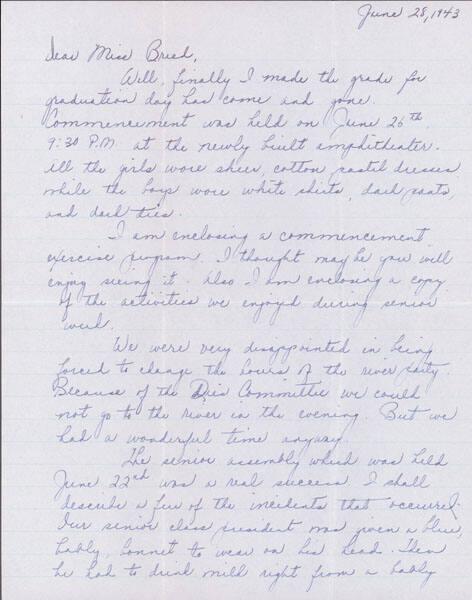 June 28, 1943
Dear Miss Breed,
Well, finally I made the grade for
graduation day has come and gone.
Commencement was held on June 26th
9:30 P.M. at the newly built amphitheater.
All the girls wore sheer, cotton pastel dresses
while the boys wore white shirts, dark pants,
and dark ties.
I am enclosing a commencement
exercise program. I thought maybe you will
enjoy seeing it. Also I am enclosing a copy
of the activities we enjoyed during senior
week.
We were very disappointed in being
forced to change the hours of the river party.
Because of the Dies Committee we could
not go to the river in the evening. But we
had a wonderful time anyway.
The senior assembly which was held
June 22nd was a real success. I shall
describe a few of the incidents that occurred.
Our senior class president was given a blue,
baby, bonnet to wear on his head. Then
he had to drink milk right from a baby